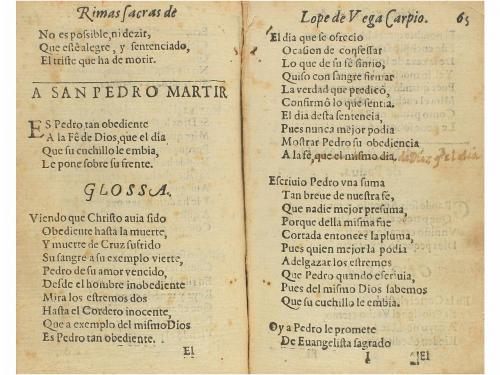 Rimas sacras de
No es possible, ni dezir,
Que estè alegre, y sentenciado,
El triste que ha de morir.
A SAN PEDRO MARTIR
ES Pedro tan obediente
A la Fê de Dios, que el dia
Que su cuchillo le embia,
Le pone sobre su frente.
GLOSSA.
Viendo que Christo auia sido
Obediente hasta la muerte,
Y muerte de Cruz sufrido
Su sangre a su exemplo vierte,
Pedro de su amor vencido,
Desde el hombre inobediente
Mira los estremos dos
Hasta el Cordero inocente,
Que a exemplo del mismo Dios
Es Pedro tan obediente.
El
Lope de Vega Carpio. 65
El dia que se ofrecio
Ocasion de confessar
Lo que de su fè sintio,
Quiso con sangre firmar
La verdad que predicò,
Confirmò lo que sentia.
El dia desta sentencia,
Pues nunca mejor podia
Mostrar Pedro su obediencia
A la fè, que el mismo dia. de Dios q el dia
Escriuio Pedro vna suma
Tan breue de nuestra fè,
Que nadie mejor presuma,
Porque della misma fue
Cortada entonces la pluma,
Pues quien mejor la podia
Adelgazar los estremos
Que Pedro quando escriuia,
Pues del mismo Dios sabemos
Que su cuchillo le embia.
Oy a Pedro le promete
De Euangelista sagrado
I El